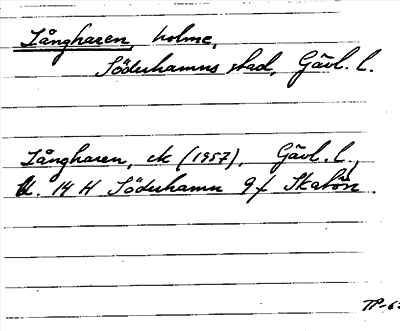 Långharen, holme,
Söderhamns stad, Gävl. l.
Långharen, ek (1957), Gävl. l.,
bl. 14 H Söderhamn 9f Skatön.
TP-63